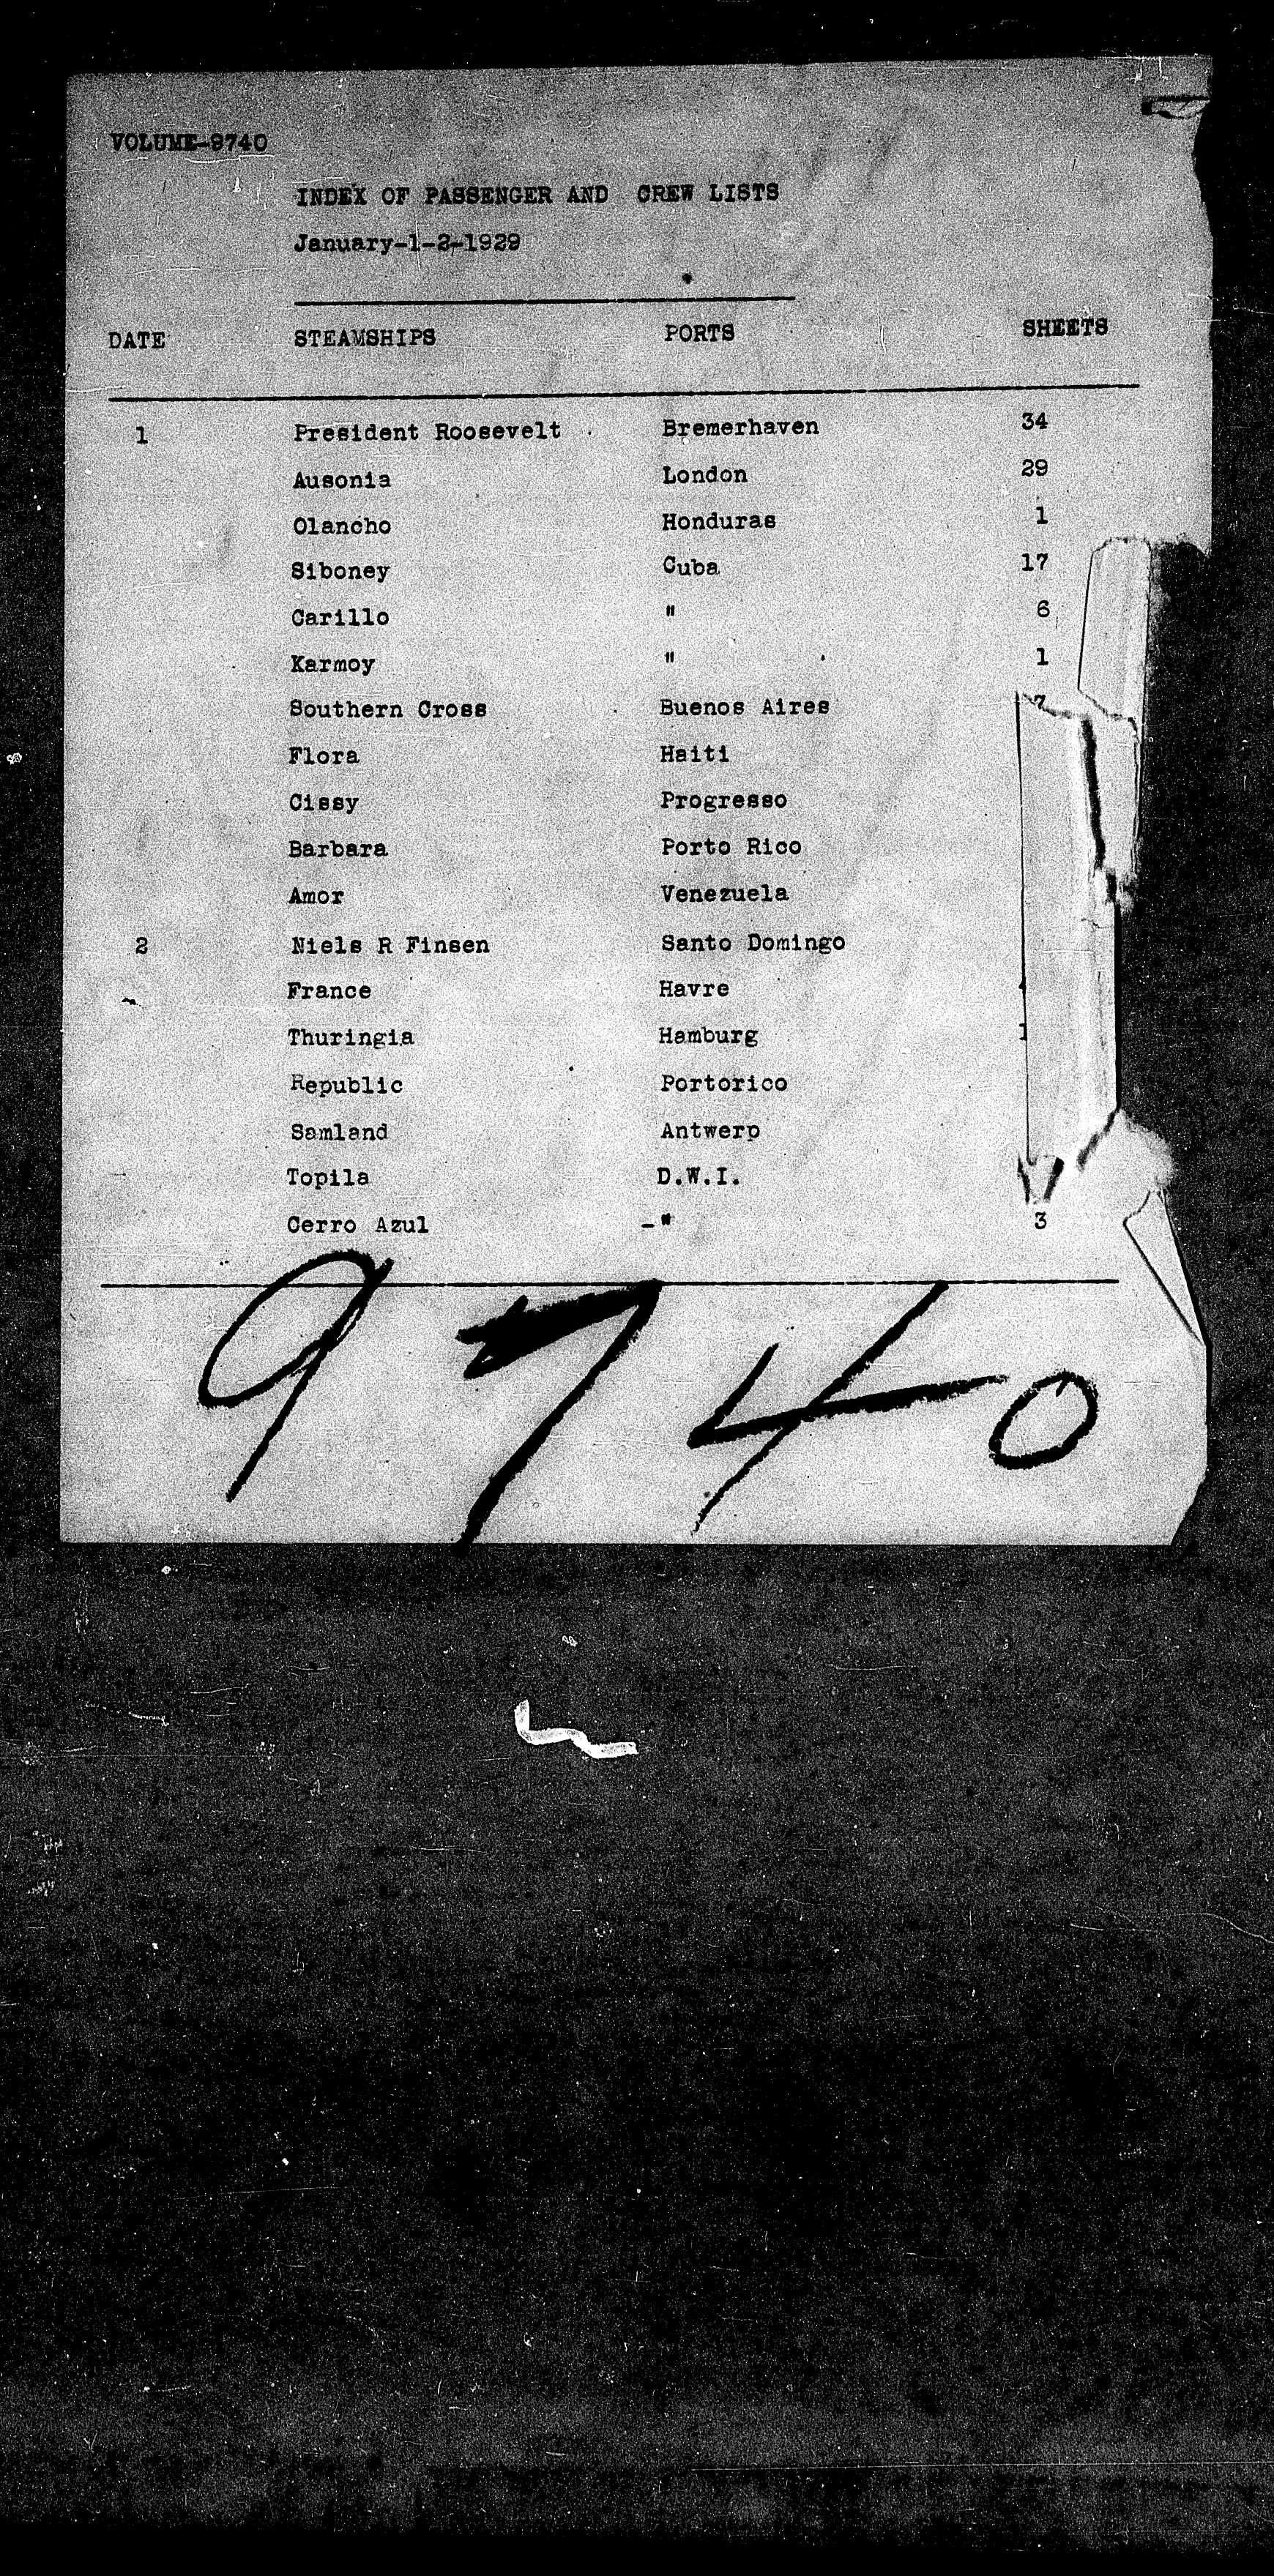 VOLUME-9740
INDEX OF PASSENGER AND CREW LISTS
January-1-2-1929
DATE STEAMSHIPS PORTS SHEETS
1 President Roosevelt Bremerhaven 34
Ausonia London 29
Olancho Honduras 1
Siboney Cuba 17
Carillo " 6
Karmoy " 1
Southern Cross Buenos Aires 7
Flora Haiti
Cissy Progresso
Barbara Porto Rico
Amor Venezuela
2 Niels R Finsen Santo Domingo
France Havre
Thuringia Hamburg 1
Republic Portorico
Samland Antwerp
Topila D.W.I.
Cerro Azul -" 3
9740